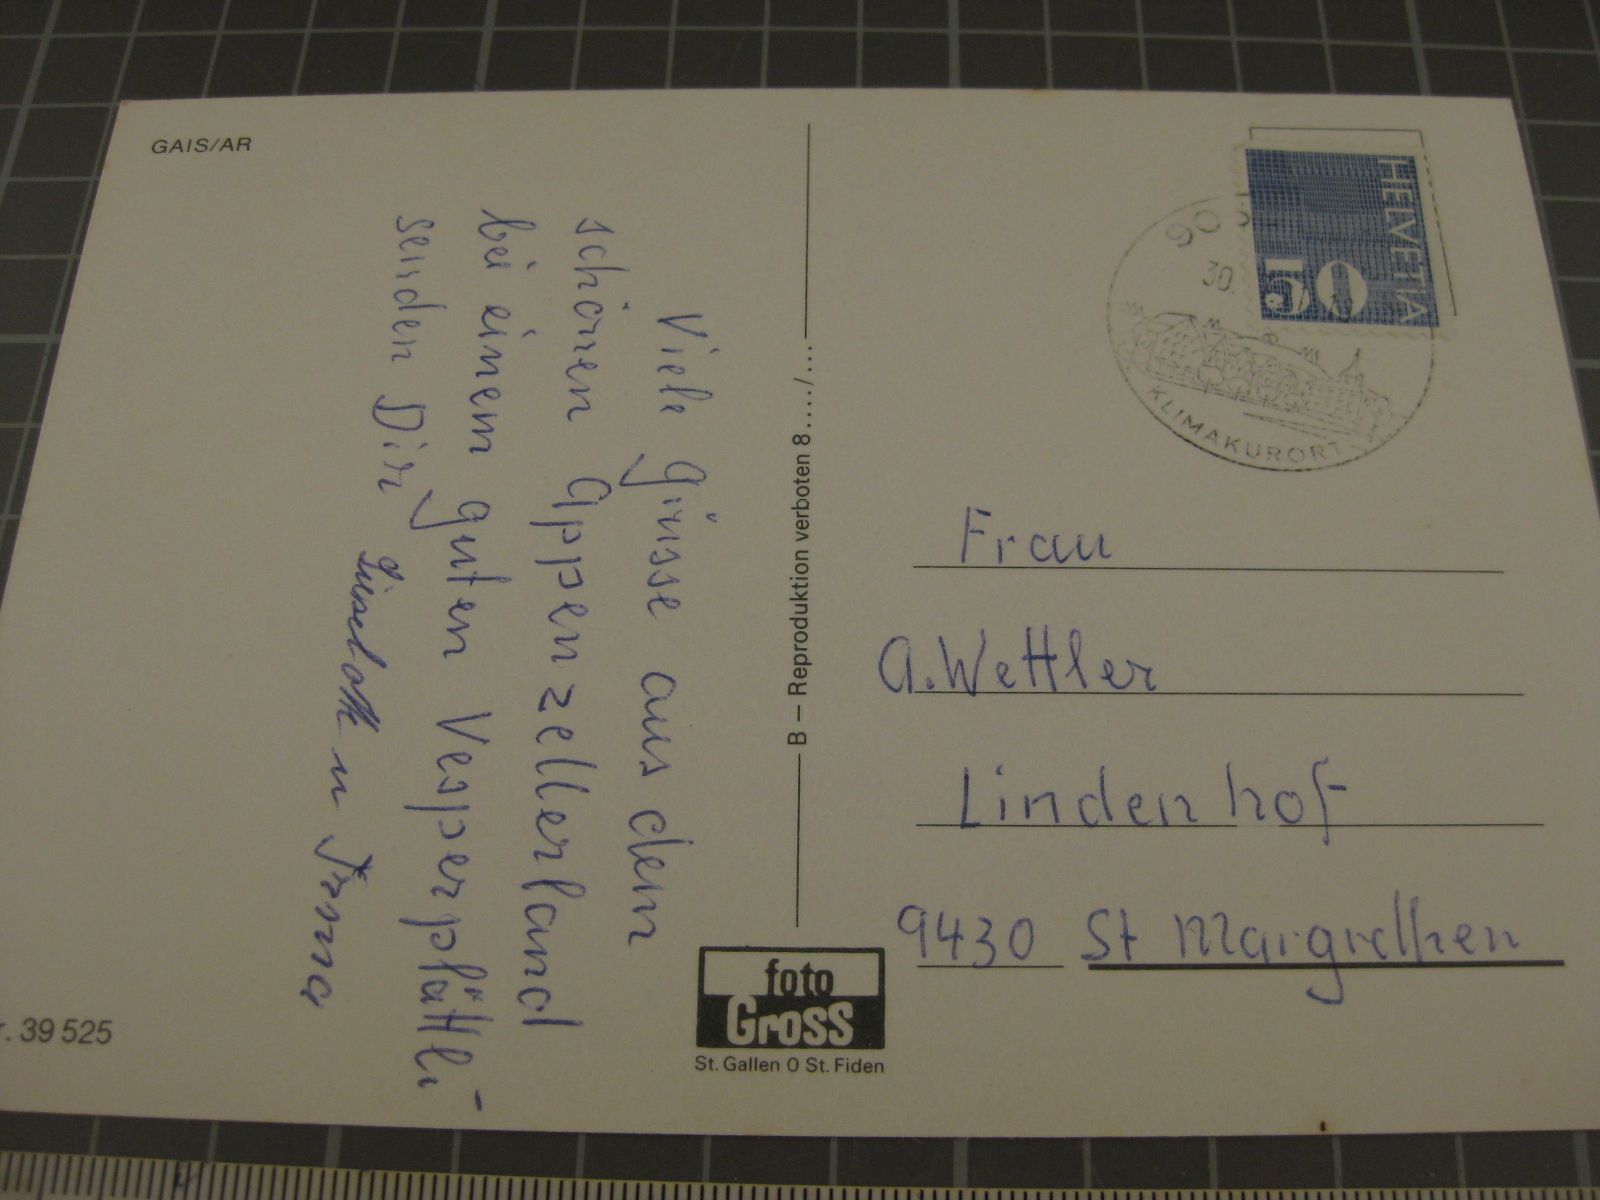 GAIS/AR
Viele Grüsse aus dem
schönen Appenzellerland
bei einem guten Vesperplättli
senden Dir
Liselott u Irma
B – Reproduktion verboten 8..../...
foto
Gross
St. Gallen O St. Fiden
39 525
HELVETIA
50
90
30.
KLIMAKURORT
Frau
A. Wettler
Lindenhof
9430 St Margrethen